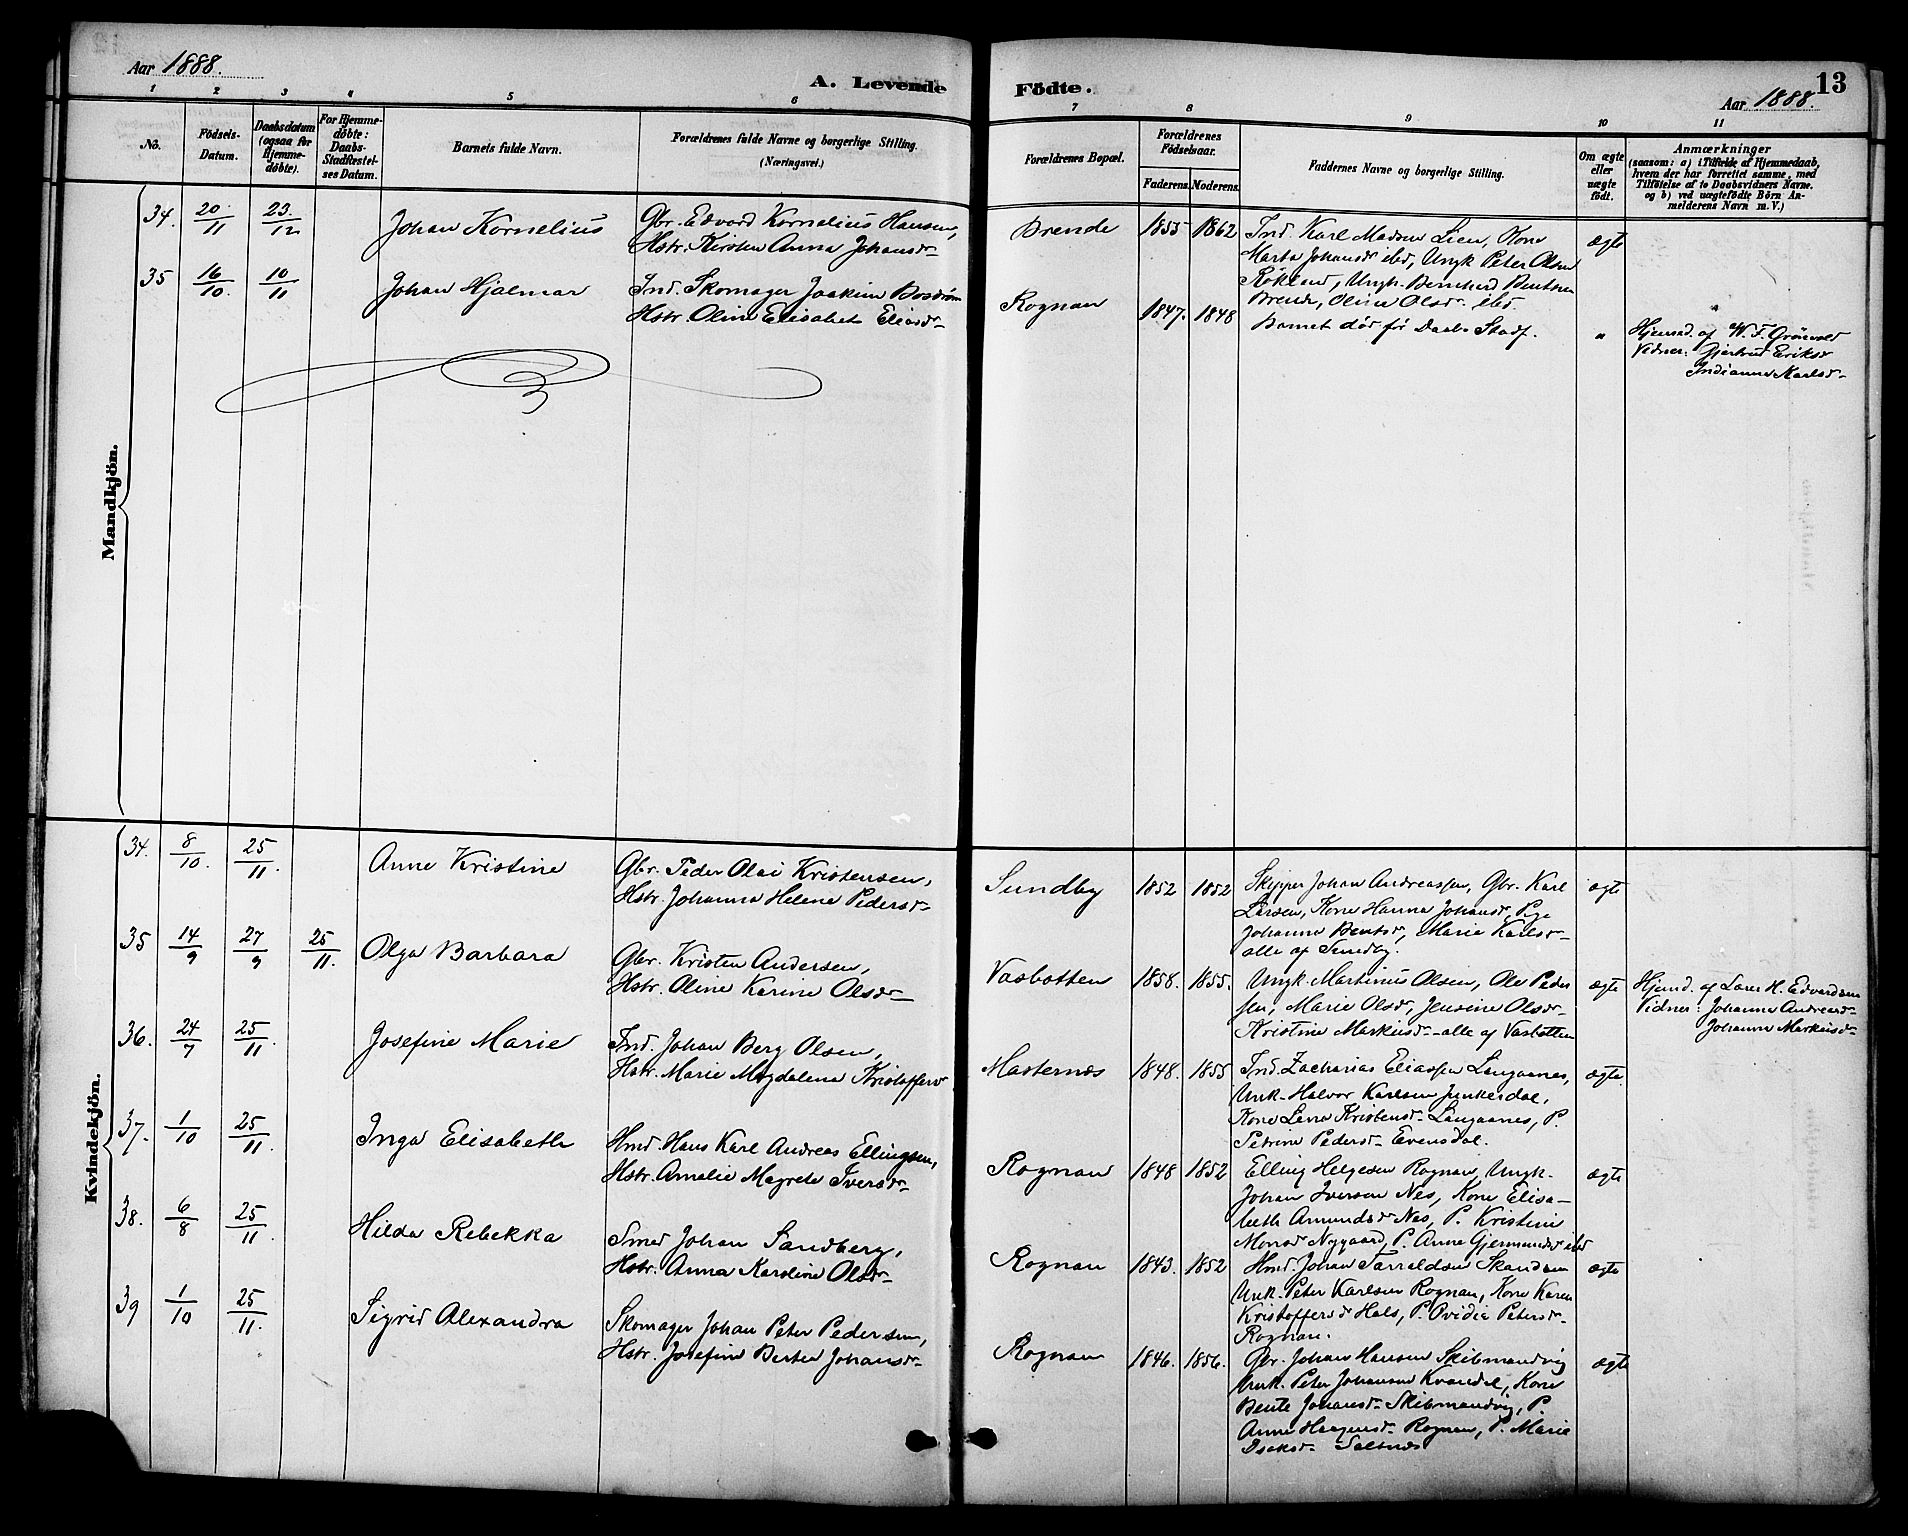 Aar 1888.
A. Levende Födte.
13
Aar 1888.
1 2 3 4 5 6 7 8 9 10 11
No.
Födsels-Datum.
Daabsdatum (ogsaa for Hjemme-döbte).
For Hjemme-döbte: Daabs-Stadfæstel-ses Datum.
Barnets fulde Navn.
Forældrenes fulde Navne og borgerlige Stilling.
(Næringsvei.)
Forældrenes Bopæl.
Forældrenes Födselsaar.
Faderens. Moderens.
Faddernes Navne og borgerlige Stilling.
Om ægte eller uægte födt.
Anmærkninger
(saasom: a) i Tilfælde af Hjemmedaab,
hvem der har forrettet samme, med
Tilföielse af to Daabsvidners Navne.
og b) ved uægtefödte Börn An-
melderens Navn m. V.)
Mandkjön.
34. 20/11 23/12 Johan Kornelius
Gbr. Edvard Kornelius Hansen,
Hstr. Kirsten Anna Johansd-
Brende 1855 1862
Ind. Karl Madsen Lien, Kone
Marta Johansd ibd, Ungk Peter Olsen
Røkland, Ungk. Bernhard Bentsen
Brende, Oline Olsd. ibd.
ægte
35 16/10. 10/11 Johan Hjalmar
Ind. Skomager Joakim
Hstr. Oline Elisabet Eliasd-
Rognan 1847. 1848
Barnet dør før Daabs Stadf.
"
Hjemd. af W. F. Grönvold
Vidner: Gjertrud Eriksd
Indianna Karlsd-
Kvindekjön.
34. 8/10. 25/11. Anne Kristine
Gbr. Peder Olai Kristensen,
Hstr. Johanna Helene Pedersd-
Sundby 1852 1852
Skipper Johan Andreassen, Gbr. Karl
Larsen, Kone Hanna Johansd, Pige
Johanna Bentsd, Marie Karlsd-
alle af Sundby.
ægte
35 14/9 27/9 25/11. Olga Barbara
Gbr. Kristen Andersen,
Hstr. Oline Karine Olsd-
Vasbotten 1858. 1855.
Ungk. Martinus Olsen, Ole Peder
sen, Marie Olsd, Jensine Olsd-
Kristine Markusd- alle af Vasbotten
ægte
Hjemd. af Lars H. Edvardsen
Vidner: Johanna Andreasd-
Johanna Markusd-
36. 24/7 25/11. Josefine Marie
Ind. Johan Berg Olsen,
Hstr. Marie Magdalena Kristoffersd
1848. 1855
Ind. Zacharias Eliassen Langaanes,
Unk. Halvor Karlsen Junkersdal,
Kone Lena Kristensd- Langaanes, P.
Petrine Pedersd- Evensdal.
ægte
37. 1/10 25/11. Inga Elisabeth
Hmd. Hans Karl Andreas Ellingsen,
Hstr. Amalie Magrete Iversd-
Rognan 1848 1852
Elling Helgesen Rognan, Ungk.
Johan Iversen Nes, Kone Elisa-
beth Amundsd Nes, P. Kristine
Monsd Nygaard, P. Anne Gjermundsd ibd
ægte
38. 6/8 25/11. Hilda Rebekka
Smed Johan Sandberg,
Hstr. Anna Karoline Olsd-
Rognan 1843. 1852
Hmd. Johan Tarraldsen
Unk. Peter Karlsen Rognan, Kone Karen
Kristoffersd Hals, P. Ovidia Petersd-
Rognan.
ægte
39 1/10 25/11. Sigrid Alexandra
Skomager Johan Peter Pedersen,
Hstr. Josefine Berta Johansd-
Rognan 1846. 1856.
Gbr. Johan Hansen Skibmandvig
Unk. Peter Johansen Kvandal, Kone
Bente Johansd- Skibmandvig, P.
Anne Haagensd- Rognan, P. Marie
Isaksd- Saltnes
ægte